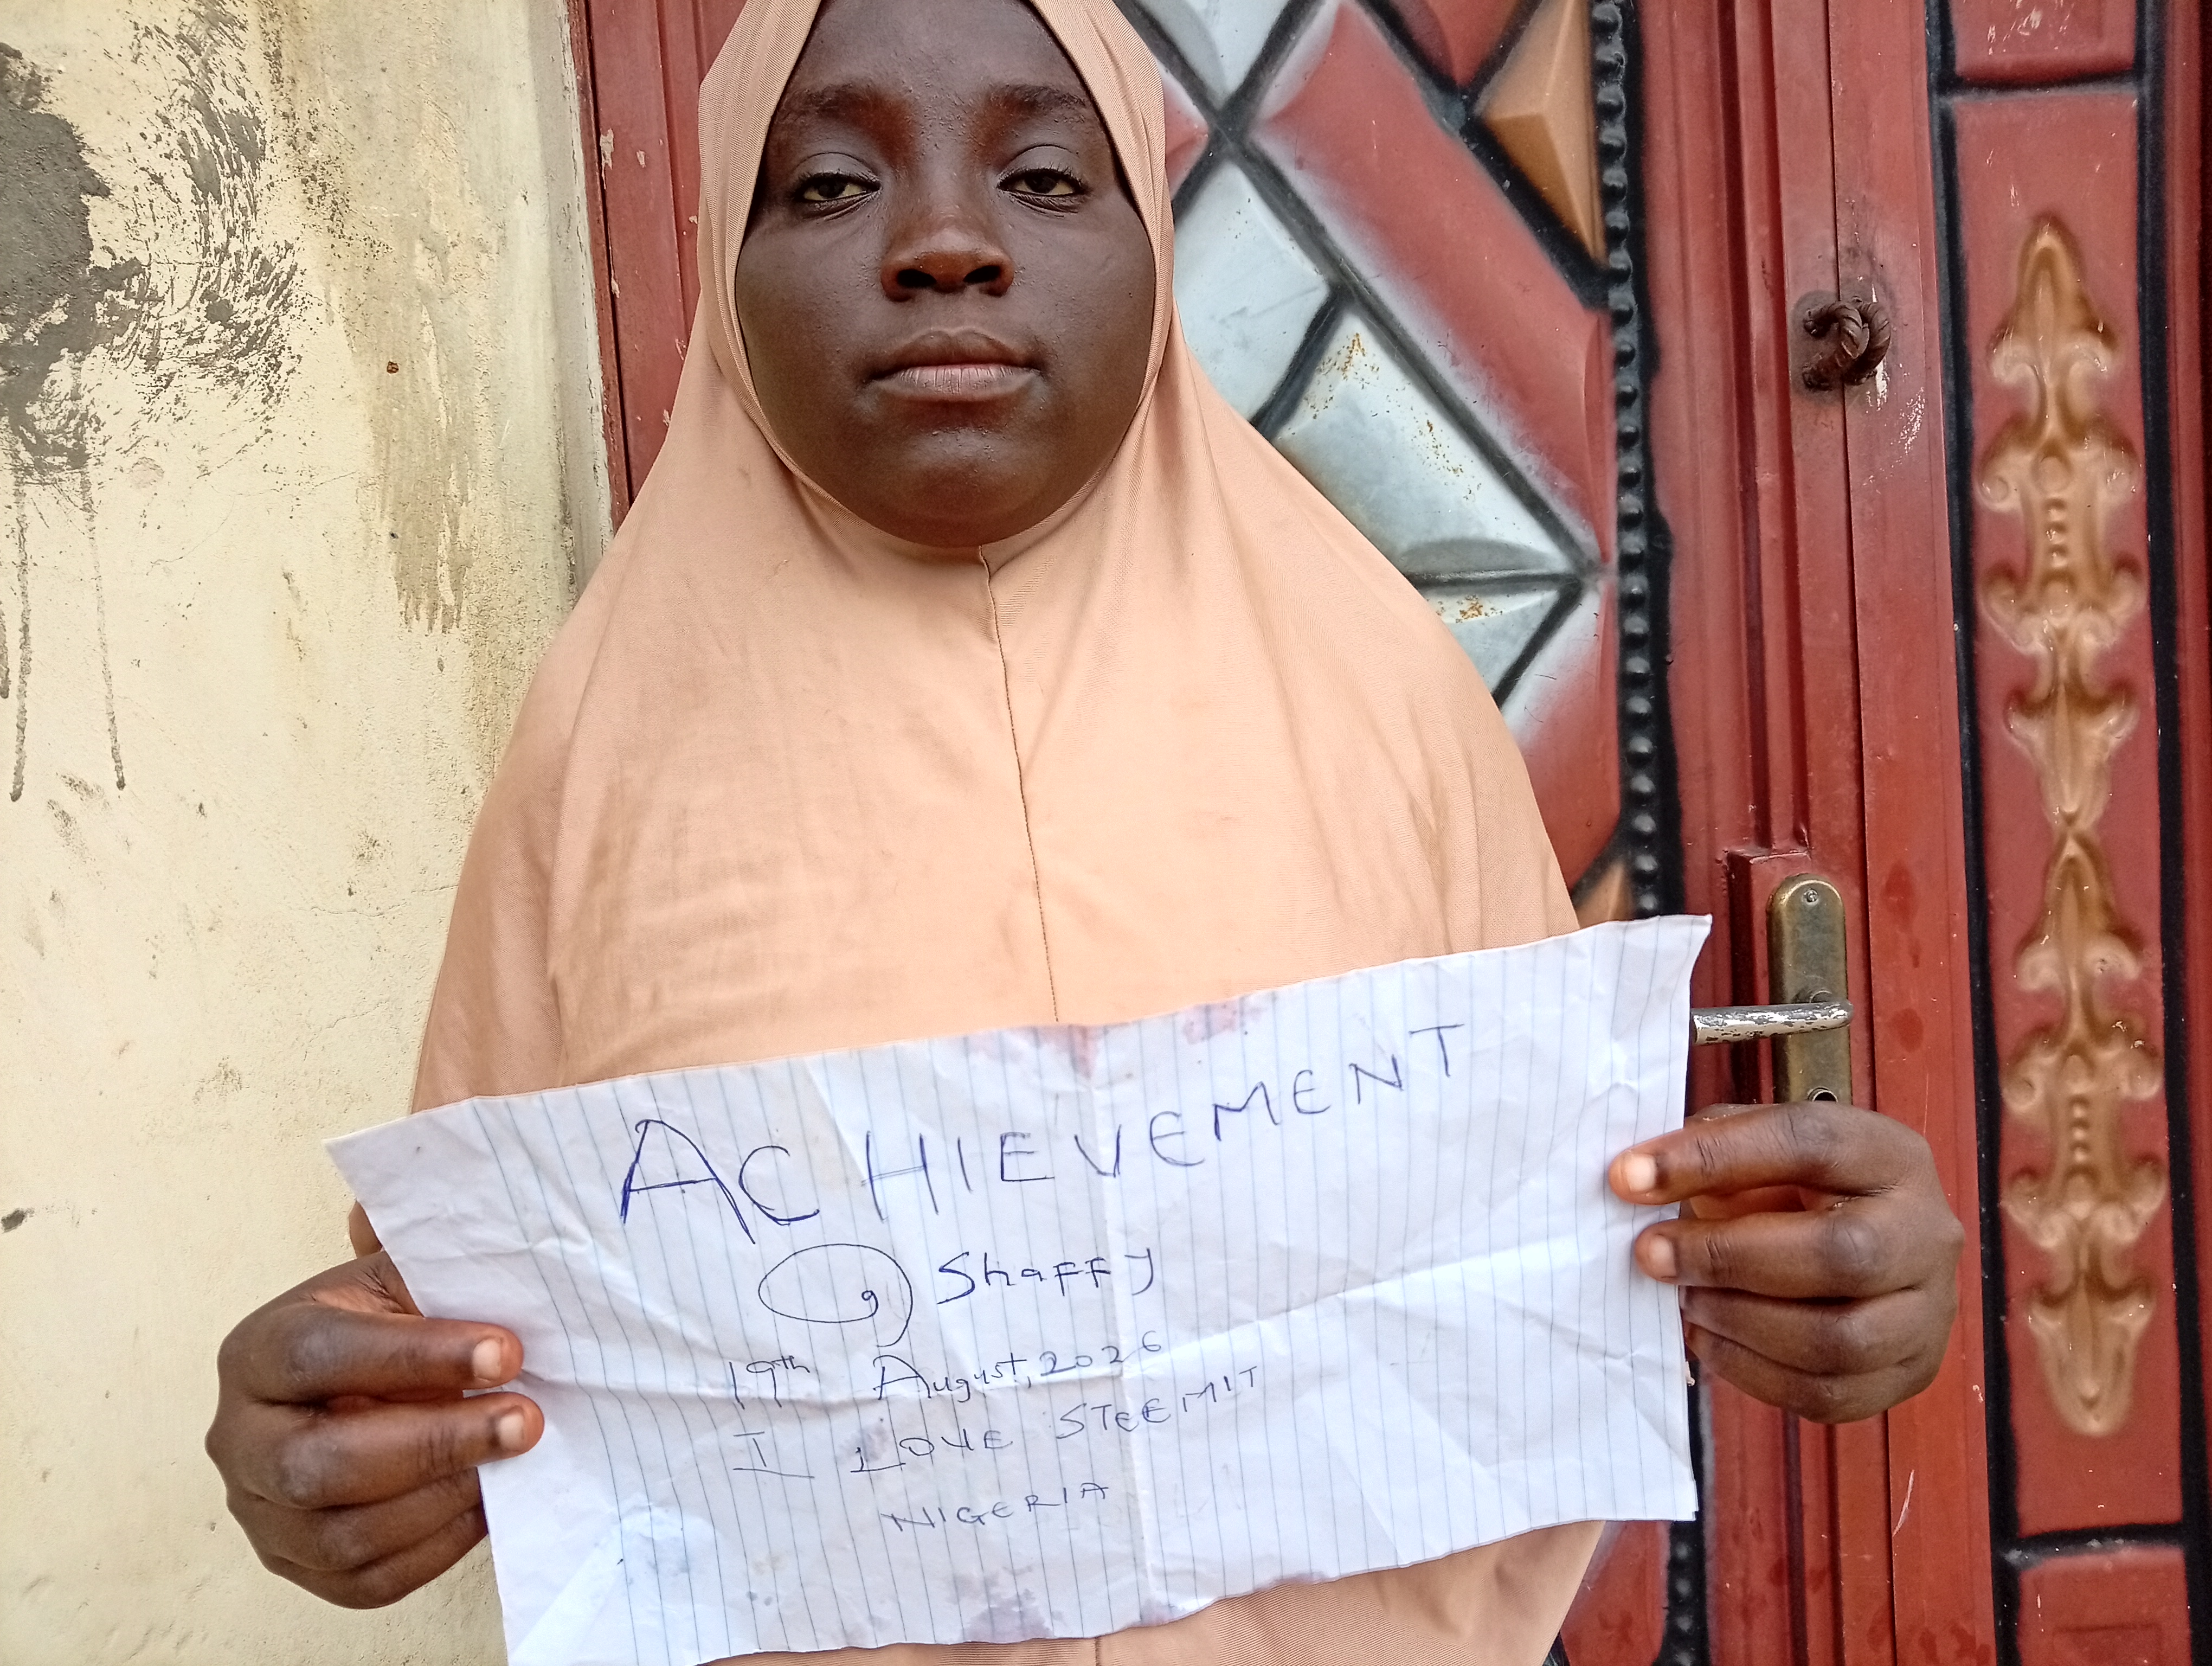 ACHIEVEMENT
@ Shaffy
19th August, 2026
I LOVE STEEMIT
NIGERIA